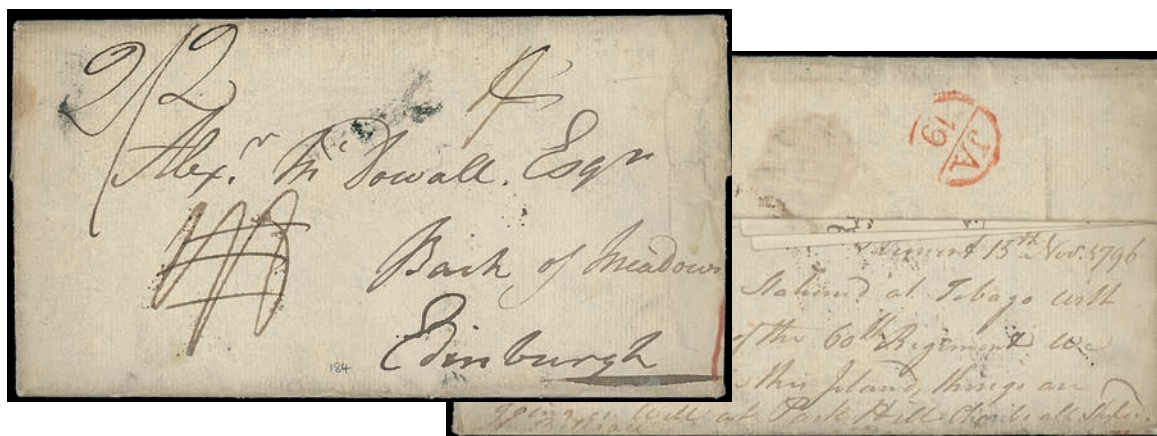 2/2
4
Alexr. McDowall. Esqr
Back of Meadows
Edinburgh
184
JA
19
15th Nov. 1796
at Tobago with
of the 60th Regiment we
this Island, things are
going on well at Park Hill